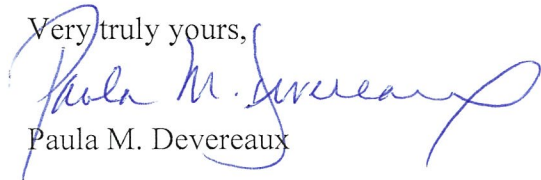 Very truly yours,
Paula M. Devereaux
Paula M. Devereaux